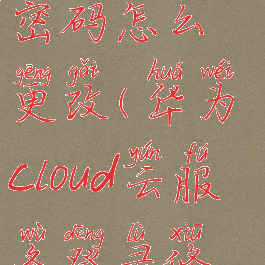 密码怎么
gēng gǎi huá wéi
更改(华为
yún fú
cloud云服
wù dēng lù xiū
务登录修